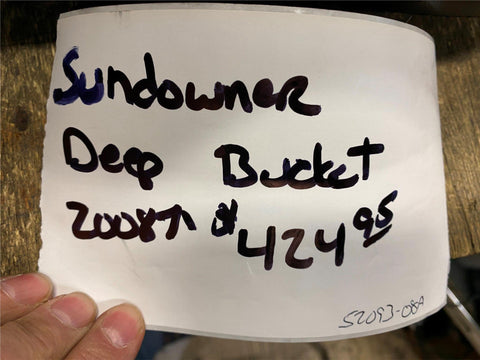 Sundowner
Deep Bucket
2008↑ $424.95
52093-08A